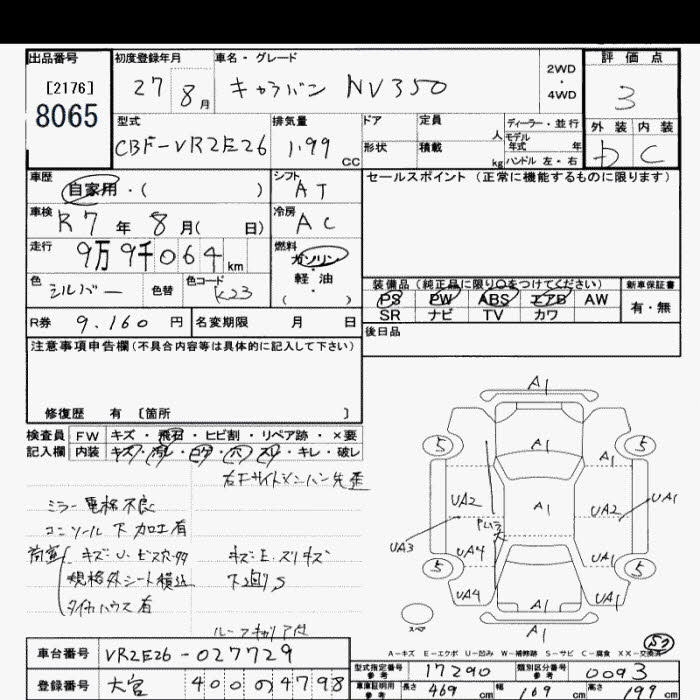 出品番号
[2176]
8065
初度登録年月
27 8月
車名・グレード
キャラバン NV350
2WD
・
4WD
評価点
3
型式
CBF-VR2E26
排気量
1.99 CC
ドア
定員 人
形状
積載 kg
ディーラー・並行
モデル年式 年
ハンドル 左・右
外装 内装
D C
車歴
自家用・( )
シフト
AT
セールスポイント (正常に機能するものに限ります)
車検
R7年 8月( 日)
冷房
AC
走行
9万9千064 km
燃料
ガソリン
・
軽油
( )
色
シルバー
色替
色コード
K23
装備品 (純正品に限り〇をつけてください)
新車保証書
PS PW ABS エアB AW
SR ナビ TV カワ
有・無
R券 9.160 円
名変期限 月 日
後日品
注意事項申告欄 (不具合内容等は具体的に記入して下さい)
修復歴 有 [箇所 ]
検査員
記入欄
FW キズ・飛石・ヒビ割・リペア跡・×要
内装 キズ・汚レ・コゲ・穴・スレ・キレ・破レ
右F サイドメンバー先歪
ミラー電格不良
コンソール下加工有
荷室 キズ・U・ビス穴多
規格外シート積込
タイヤハウス有
キズE・スリキズ
下廻りS
ルーフキャリア付
A1
A1
A1
A1
A1
A1
5
5
5
5
UA2
UA3
UA4
UA4
UA2
UA1
UA1
UA1
A1
スペア
A－キズ E－エクボ U－凹み W－補修跡 S－サビ C－腐食 XX－交換済
車台番号 VR2E26-027729
登録番号 大宮 400 の 4798
型式指定番号
参考
17290
類別区分番号
参考
0093
車庫証明用
参考
長さ 469 cm 幅 169 cm 高さ 199 cm